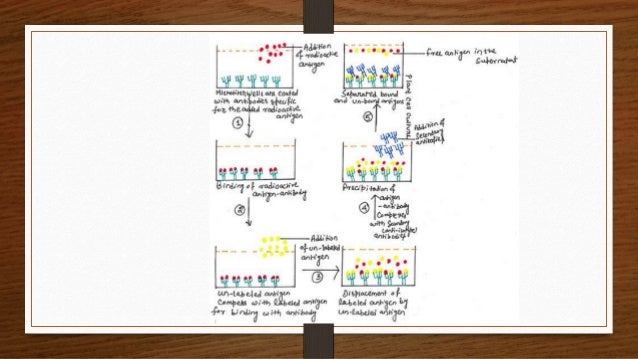 Addition
of radioactive
antigen
Microtitre wells are coated
with antibodies specific
for the added radioactive
antigen
1
Binding of radioactive
antigen-antibody
2
Addition
of un-labeled
antigen
un-labeled antigen
Compete with labeled antigen
for binding with antibody
3
Displacement of
labeled antigen by
un-labeled antigen
4
Precipitation of
antigen
-antibody
with
antibodies
Addition of
Secondary
antibodies
5
Separated bound
and un-bound antigens
free antigen in the